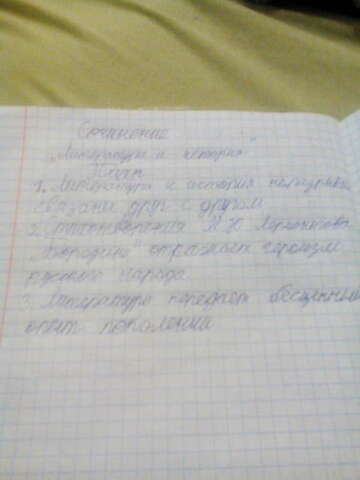 Сочинение
„Литература и история"
План
1. Литература и история неразрывно
связаны друг с другом
2. Стихотворения М Ю Лермонтова
„Бородино" отражает героизм
русского народа.
3. Литература передаёт бесценный
опыт поколений